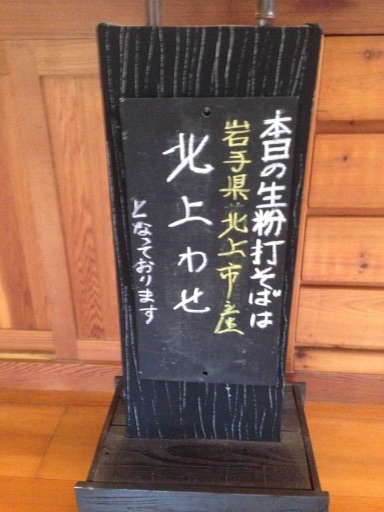 本日の生粉打そばは
岩手県北上市産
北上わせ
となっております